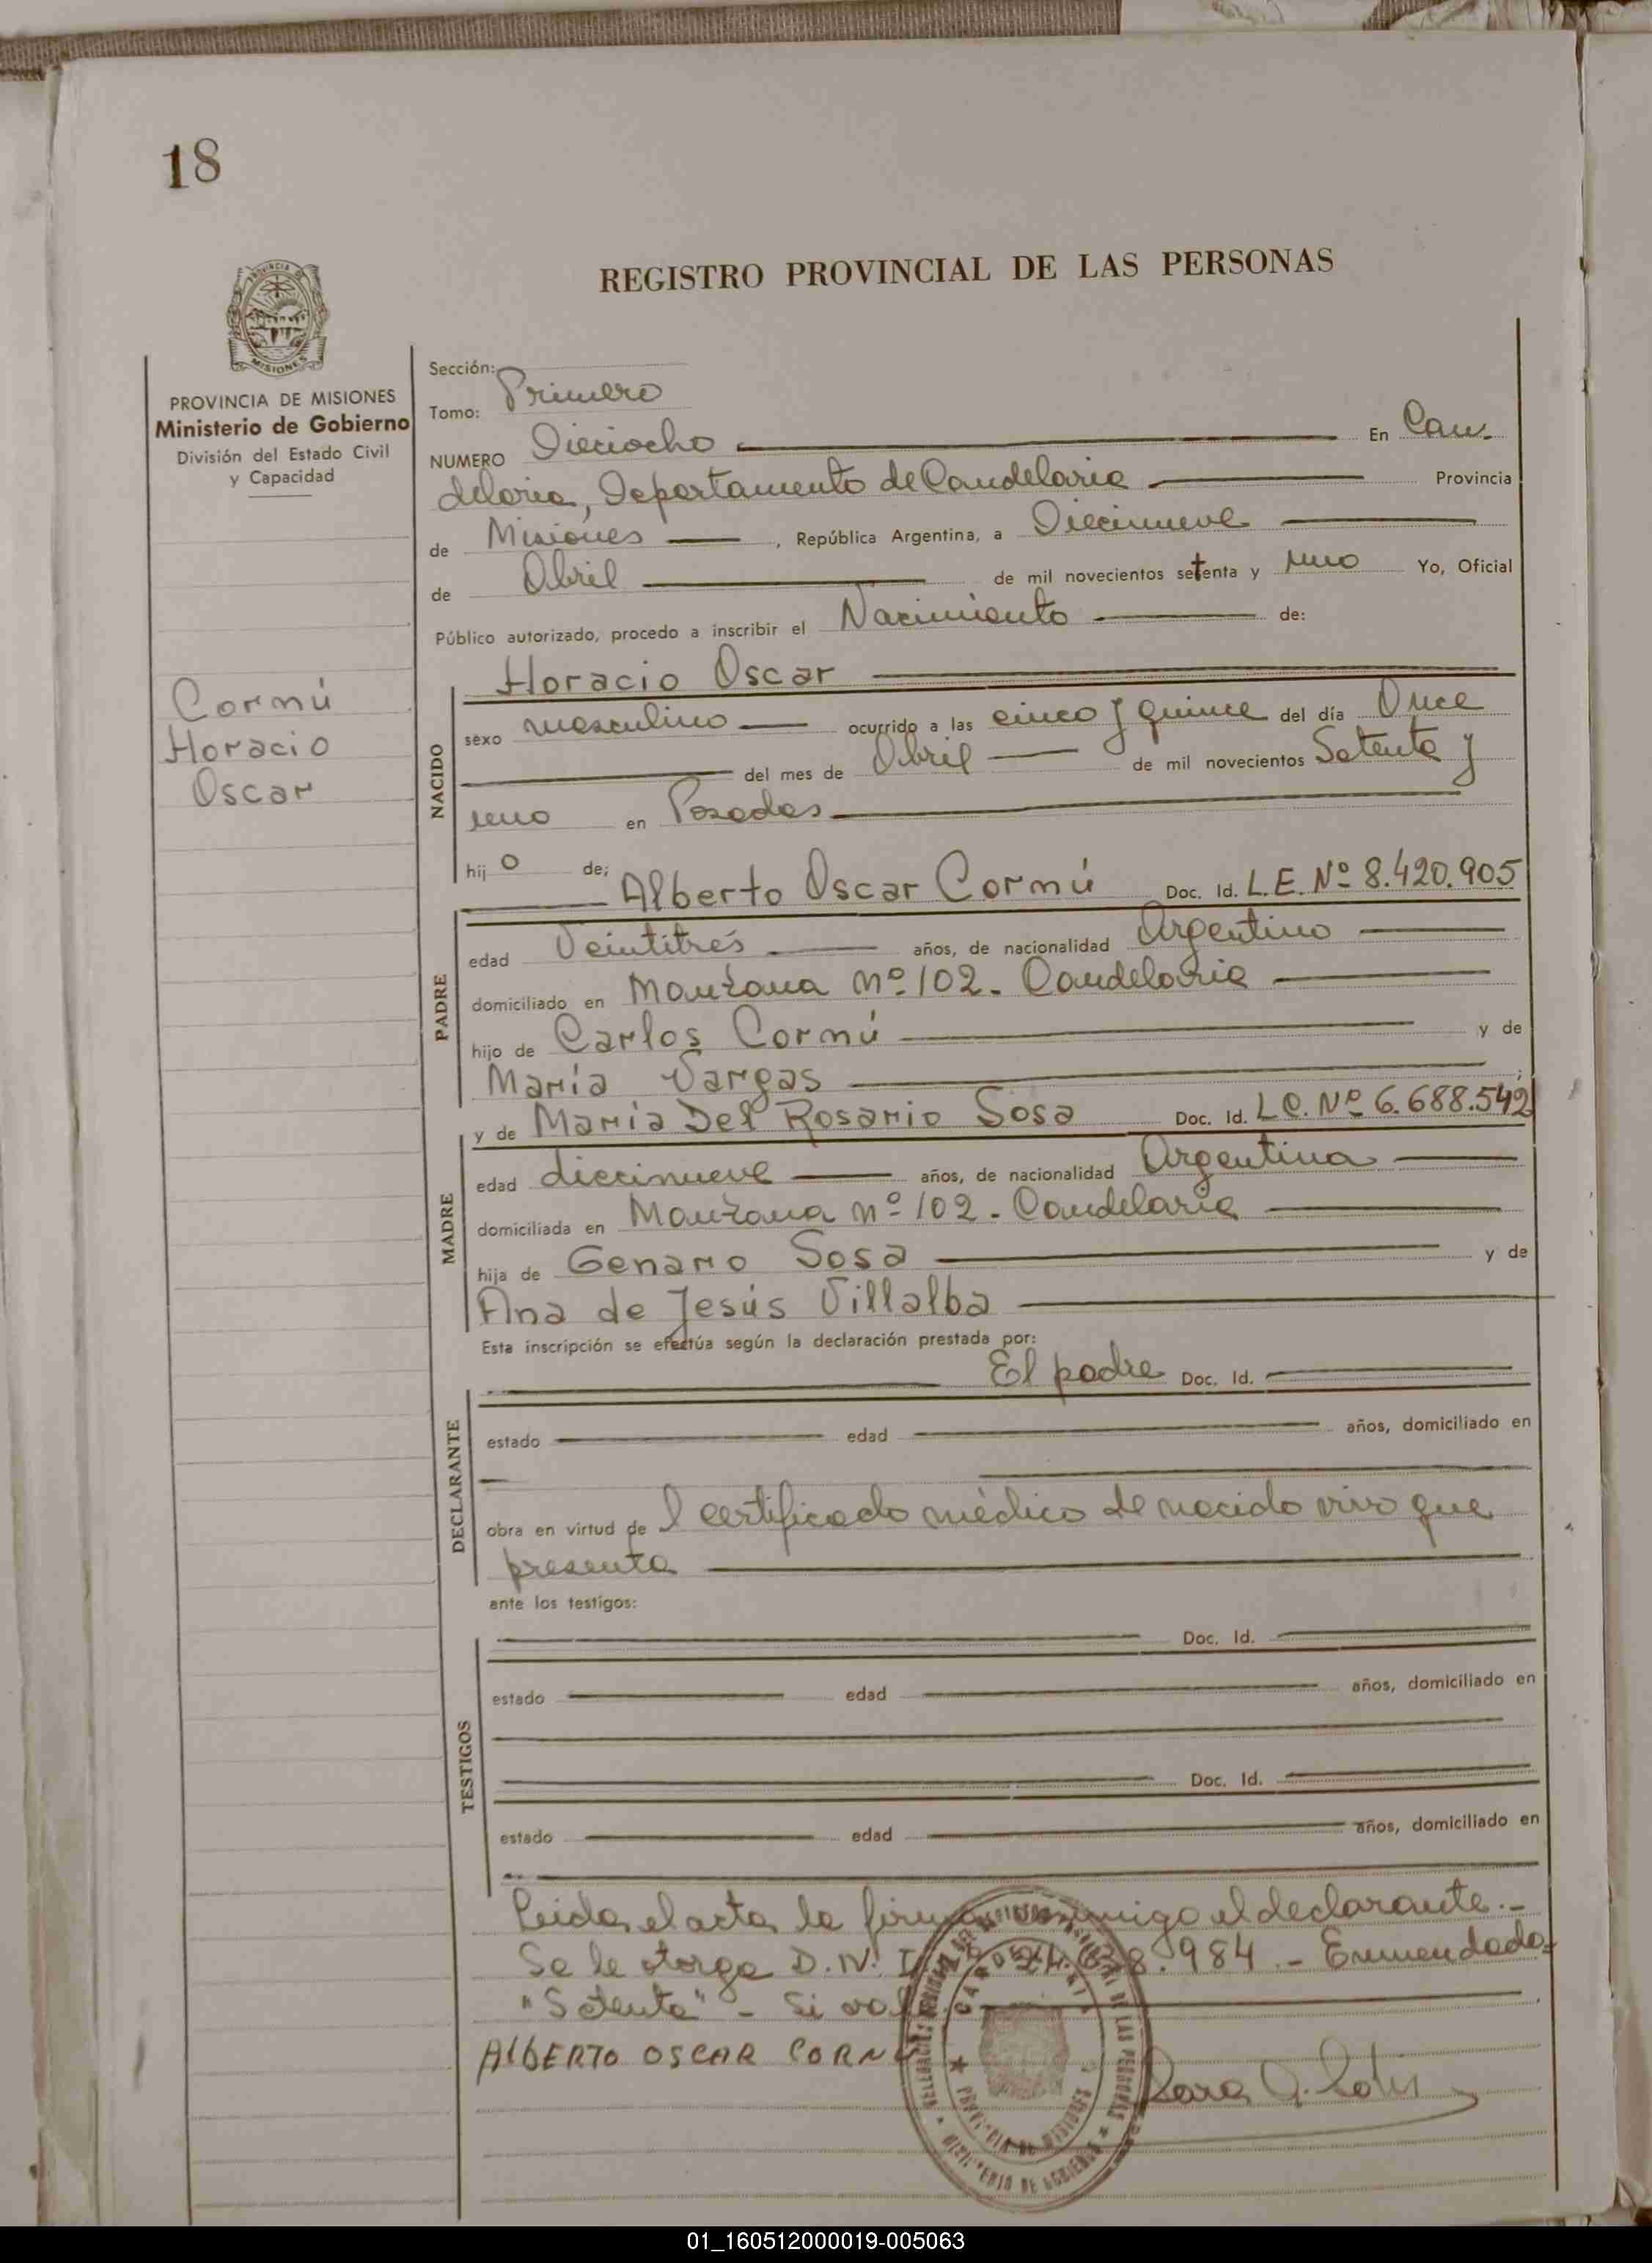 18
REGISTRO PROVINCIAL DE LAS PERSONAS
PROVINCIA DE MISIONES
Ministerio de Gobierno
División del Estado Civil
y Capacidad
Cornú
Horacio
Oscar
Sección:
Tomo: Primero
NUMERO Dieciocho En Can-
delaria, Departamento de Candelaria Provincia
de Misiones, República Argentina, a Diecinueve
de Abril de mil novecientos setenta y uno Yo, Oficial
Público autorizado, procedo a inscribir el Nacimiento de:
Horacio Oscar
NACIDO
sexo masculino ocurrido a las cinco y quince del día Once
del mes de Abril de mil novecientos Setenta y
uno en Posadas
hijo de; Alberto Oscar Cornú Doc. Id. L.E. Nº 8.420.905
PADRE
edad Veintitrés años, de nacionalidad Argentino
domiciliado en Manzana nº 102. Candelaria
hijo de Carlos Cornú y de
María Vargas ;
y de María Del Rosario Sosa Doc. Id. L.C. Nº 6.688.542
MADRE
edad diecinueve años, de nacionalidad Argentina
domiciliada en Manzana nº 102. Candelaria
hija de Genaro Sosa y de
Ana de Jesús Villalba
Esta inscripción se efectúa según la declaración prestada por:
El padre Doc. Id.
DECLARANTE
estado edad años, domiciliado en
obra en virtud de l certificado médico de nacido vivo que
presenta
ante los testigos:
TESTIGOS
Doc. Id.
estado edad años, domiciliado en
Doc. Id.
estado edad años, domiciliado en
Leida el acta la firma conmigo el declarante.-
Se le otorga D.N.I. 8.984.- Enmendado
"Setenta" - Si vale
ALBERTO OSCAR CORNÚ
MINISTERIO DE GOBIERNO
PROVINCIA DE MISIONES
01_160512000019-005063